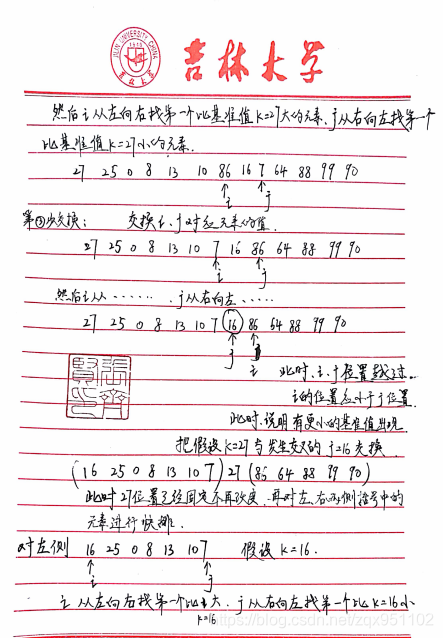 JILIN UNIVERSITY CHINA
吉林大学
然后i从左向右找第一个比基准值k=27大的元素、j从右向左找第一个
比基准值k=27小的元素.
27 25 0 8 13 10 86 16 7 64 88 99 90
i j
第③步交换： 交换i、j对应元素的值.
27 25 0 8 13 10 7 16 86 64 88 99 90
i j
然后i从……… j从右向左……
27 25 0 8 13 10 7 16 86 64 88 99 90
j i
此时、i、j位置越过.
i的位置 j位置
此时,说明有更小的基准值出现
把假设k=27与发生交叉的j=16交换
(16 25 0 8 13 10 7) 27 (86 64 88 99 90)
此时27位置已经固定不再改变,再对左、右两侧括号中的
元素进行快排.
对左侧 16 25 0 8 13 10 7 假设k=16.
i j
i从左向右找第一个比 大、j从右向左找第一个比k=16小
k=16
https://blog.csdn.net/zqx951102